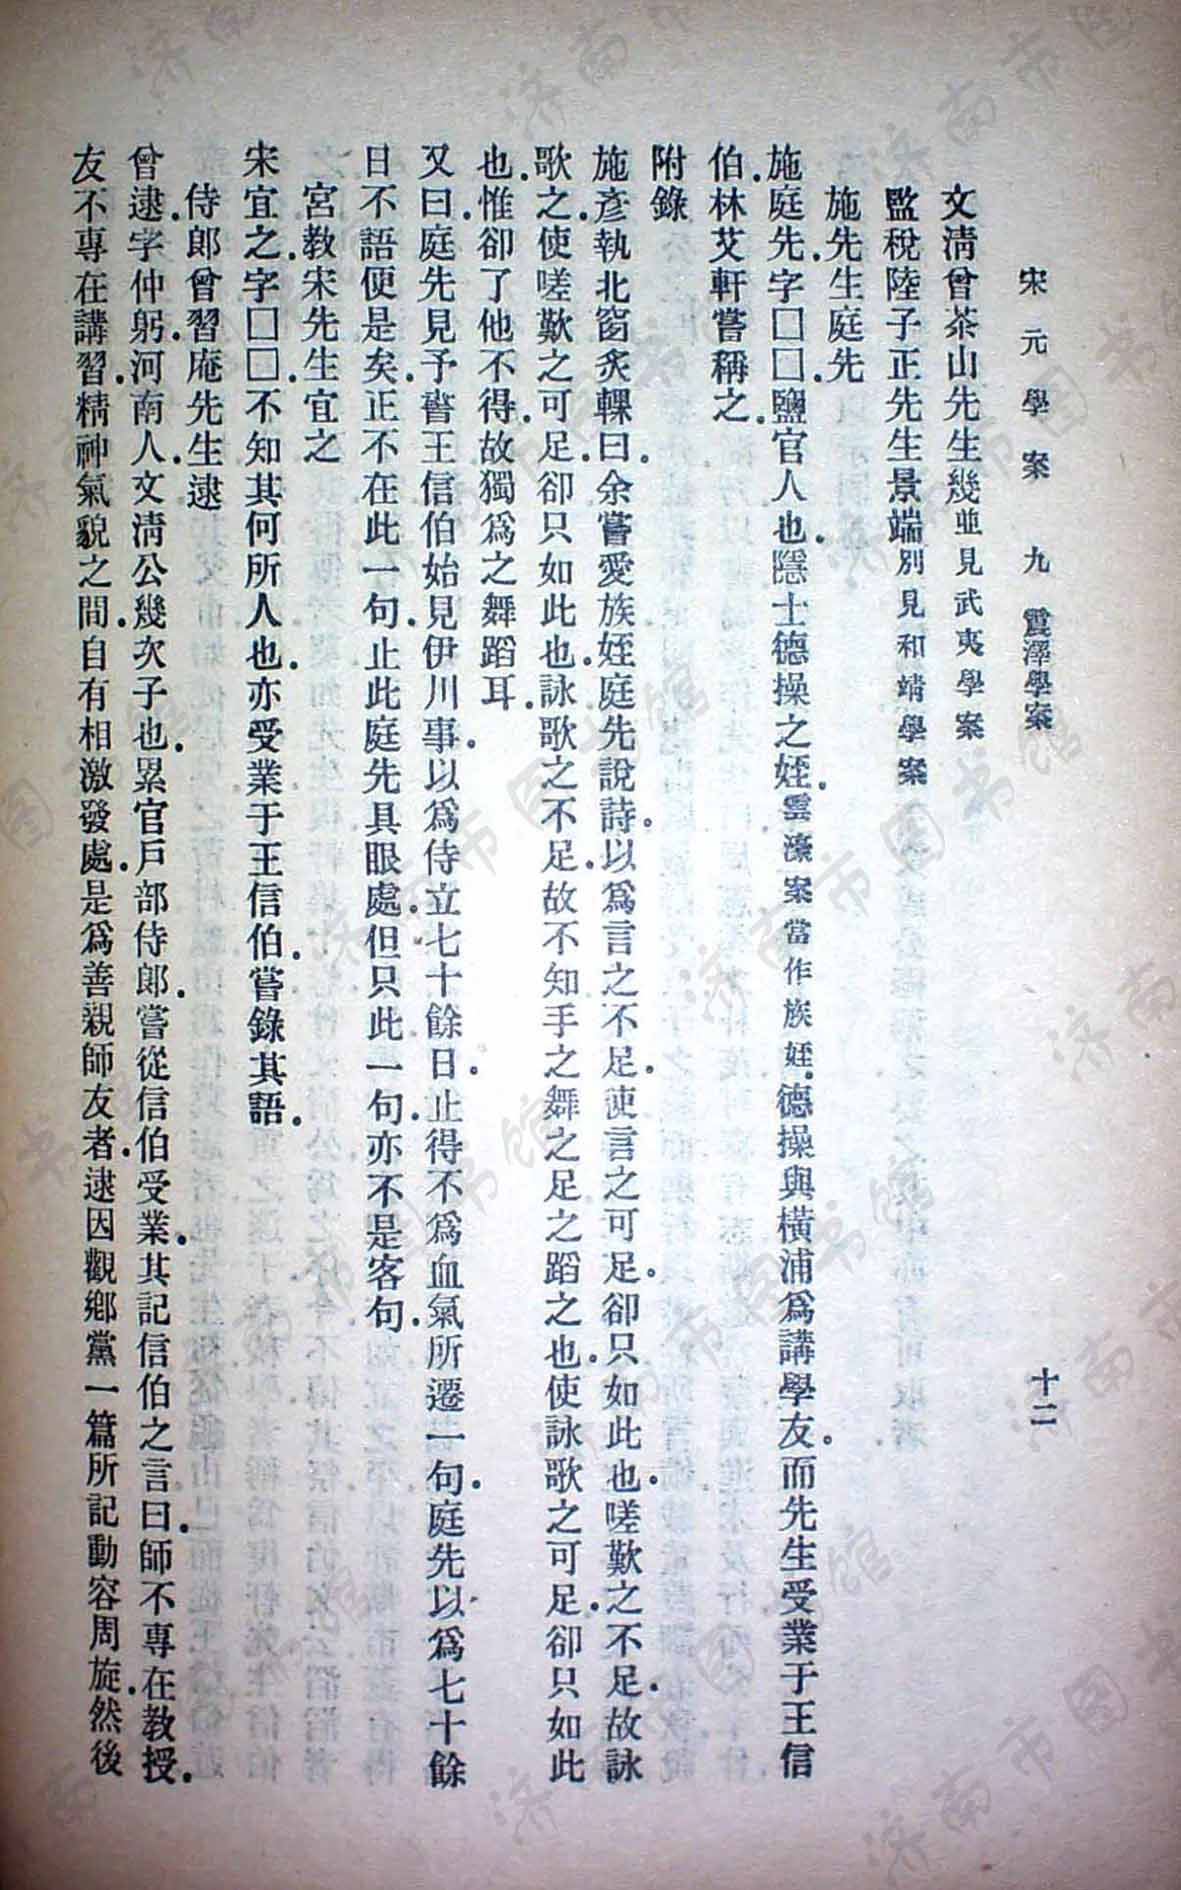 宋元學案　九　震澤學案　十二
文淸曾茶山先生幾並見武夷學案
監稅陸子正先生景端別見和靖學案
施先生庭先
施庭先.字□□.鹽官人也.隱士德操之姪.雲濠案當作族姪.德操與橫浦爲講學友.而先生受業于王信
伯.林艾軒嘗稱之.
附錄
施彥執北窗炙輠曰.余嘗愛族姪庭先說詩.以爲言之不足.使言之可足.卻只如此也.嗟歎之不足.故詠
歌之.使嗟歎之可足.卻只如此也.詠歌之不足.故不知手之舞之足之蹈之也.使詠歌之可足.卻只如此
也.惟卻了他不得.故獨爲之舞蹈耳.
又曰.庭先見予書王信伯始見伊川事.以爲侍立七十餘日.止得不爲血氣所遷一句.庭先以爲七十餘
日不語便是矣.正不在此一句.止此庭先具眼處.但只此一句.亦不是客句.
宮教宋先生宜之
宋宜之.字□□.不知其何所人也.亦受業于王信伯.嘗錄其語.
侍郎曾習庵先生逮
曾逮.字仲躬.河南人.文淸公幾次子也.累官戶部侍郎.嘗從信伯受業.其記信伯之言曰.師不專在教授.
友不專在講習.精神氣貌之間.自有相激發處.是爲善親師友者.逮因觀鄉黨一篇所記動容周旋.然後